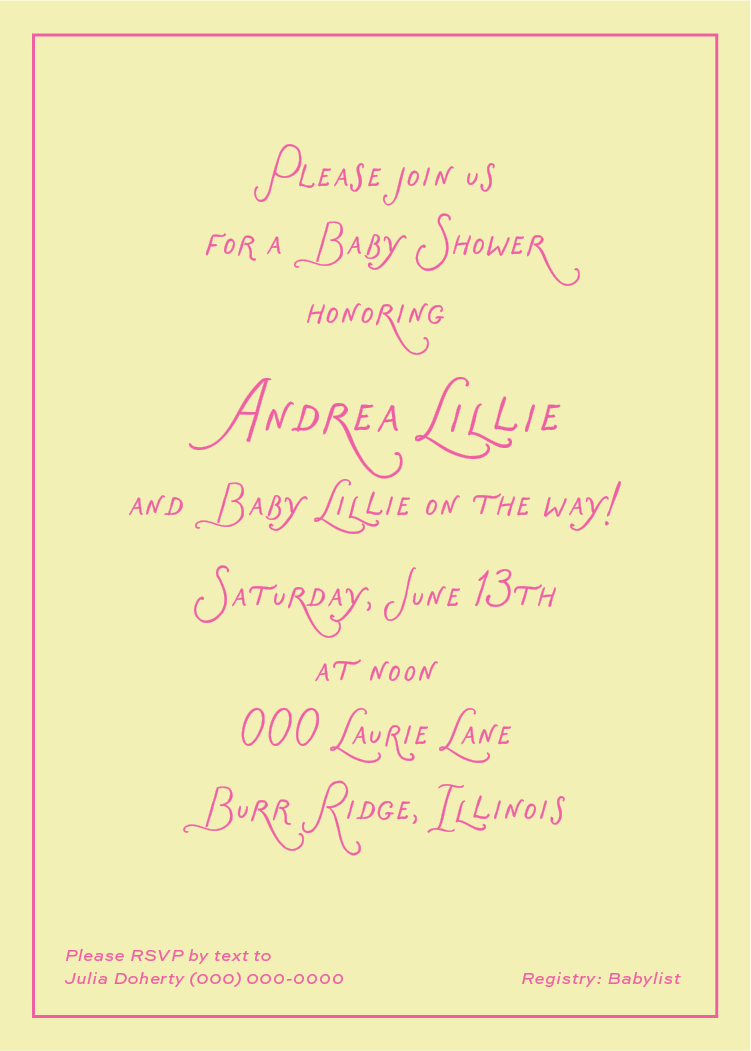 Please join us
for a Baby Shower
honoring
Andrea Lillie
and Baby Lillie on the way!
Saturday, June 13th
at noon
000 Laurie Lane
Burr Ridge, Illinois
Please RSVP by text to
Julia Doherty (000) 000-0000
Registry: Babylist